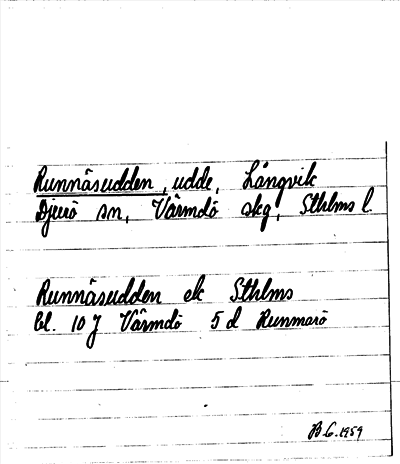 Runnäsudden, udde, Långvik
Djurö sn, Värmdö skg, Sthlms l.
Runnäsudden ek Sthlms
bl. 10 J Värmdö 5 d Runmarö
B.G. 1959